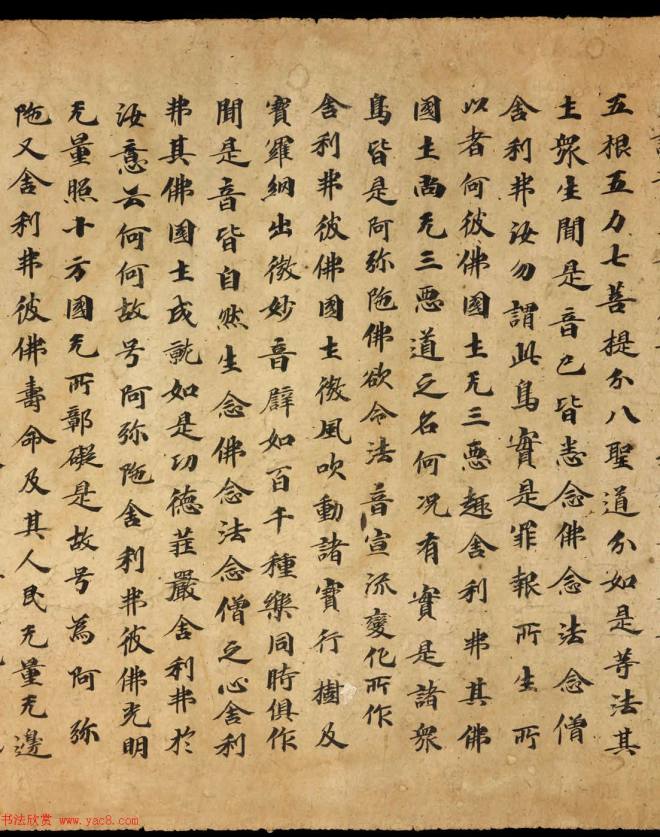 五根五力七菩提分八聖道分如是等法其
土衆生聞是音已皆悉念佛念法念僧
舍利弗汝勿謂此鳥實是罪報所生所
以者何彼佛國土无三惡趣舍利弗其佛
國土尚无三惡道之名何况有實是諸衆
鳥皆是阿弥陁佛欲令法音宣流變化所作
舍利弗彼佛國土微風吹動諸寶行樹及
寶羅網出微妙音辟如百千種樂同時俱作
聞是音皆自然生念佛念法念僧之心舍利
弗其佛國土成就如是功德莊嚴舍利弗於
汝意云何何故号阿弥陁舍利弗彼佛光明
无量照十方國无所鄣礙是故号為阿弥
陁又舍利弗彼佛壽命及其人民无量无邊
书法欣赏 www.yac8.com